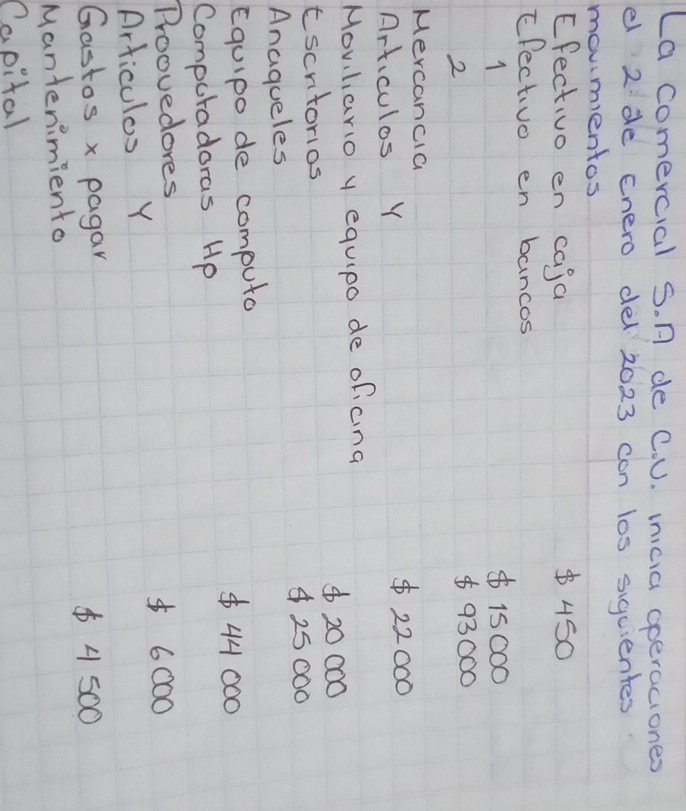 La comercial S.A de C.V. inicia operaciones
el 2 de Enero del 2023 con los siguientes
movimientos
Efectivo en caja $ 450
Efectivo en bancos
1 $ 15000
2 $ 93000
Mercancia
Articulos Y $ 22 000
Moviliario y equipo de oficina
Escritorios $ 20 000
Anaqueles $ 25 000
Equipo de computo
Computadoras Hp $ 44 000
Proovedores
Articulos Y $ 6 000
Gastos x pagar
Mantenimiento $ 4 500
Capital